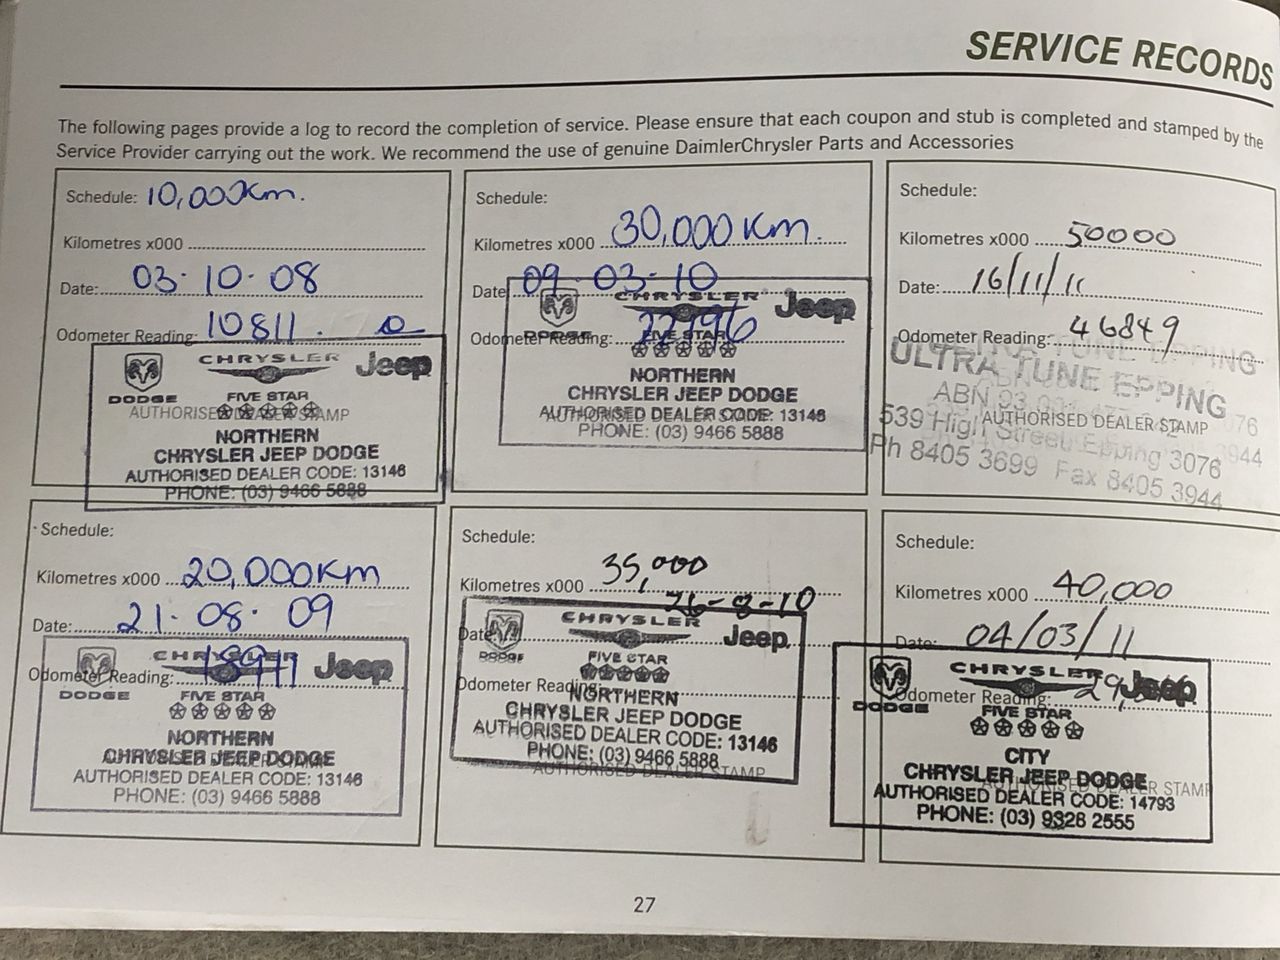 SERVICE RECORDS
The following pages provide a log to record the completion of service. Please ensure that each coupon and stub is completed and stamped by the
Service Provider carrying out the work. We recommend the use of genuine DaimlerChrysler Parts and Accessories
Schedule: 10,000Km.
Kilometres x000
Date: 03·10·08
Odometer Reading: 10811.
DODGE
CHRYSLER
Jeep
FIVE STAR
AUTHORISED DEALER STAMP
NORTHERN
CHRYSLER JEEP DODGE
AUTHORISED DEALER CODE: 13146
PHONE: (03) 9466 5888
Schedule:
Kilometres x000 30,000 Km.
Date 09·03·10
Odometer Reading:
DODGE
CHRYSLER
Jeep
FIVE STAR
NORTHERN
CHRYSLER JEEP DODGE
AUTHORISED DEALER CODE: 13146
PHONE: (03) 9466 5888
Schedule:
Kilometres x000 50000
Date: 16/11/11
Odometer Reading: 46849
ULTRA TUNE EPPING
ABN 93
AUTHORISED DEALER STAMP
539 High Street Epping 3076
Ph 8405 3699 Fax 8405 3944
Schedule:
Kilometres x000 20,000Km
Date: 21·08·09
Odometer Reading:
DODGE
CHRYSLER
Jeep
FIVE STAR
NORTHERN
CHRYSLER JEEP DODGE
AUTHORISED DEALER CODE: 13146
PHONE: (03) 9466 5888
Schedule:
Kilometres x000 35,000
Date 26-8-10
Odometer Reading:
DODGE
CHRYSLER
Jeep
FIVE STAR
NORTHERN
CHRYSLER JEEP DODGE
AUTHORISED DEALER CODE: 13146
PHONE: (03) 9466 5888
AUTHORISED DEALER STAMP
Schedule:
Kilometres x000 40,000
Date: 04/03/11
Odometer Reading:
DODGE
CHRYSLER
Jeep
FIVE STAR
CITY
CHRYSLER JEEP DODGE
AUTHORISED DEALER STAMP
AUTHORISED DEALER CODE: 14793
PHONE: (03) 9326 2555
27